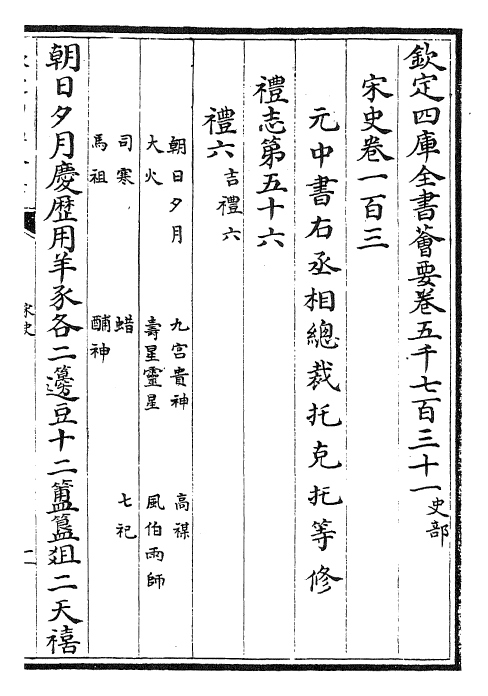 欽定四庫全書薈要卷五千七百三十一 史部
宋史卷一百三
元中書右丞相總裁托克托等修
禮志第五十六
禮六 吉禮六
朝日夕月 九宫貴神 高禖
大火 壽星靈星 風伯雨師
司寒 蜡 七祀
馬祖 酺神
朝日夕月慶歴用羊豕各二籩豆十二簠簋爼二天禧
宋史